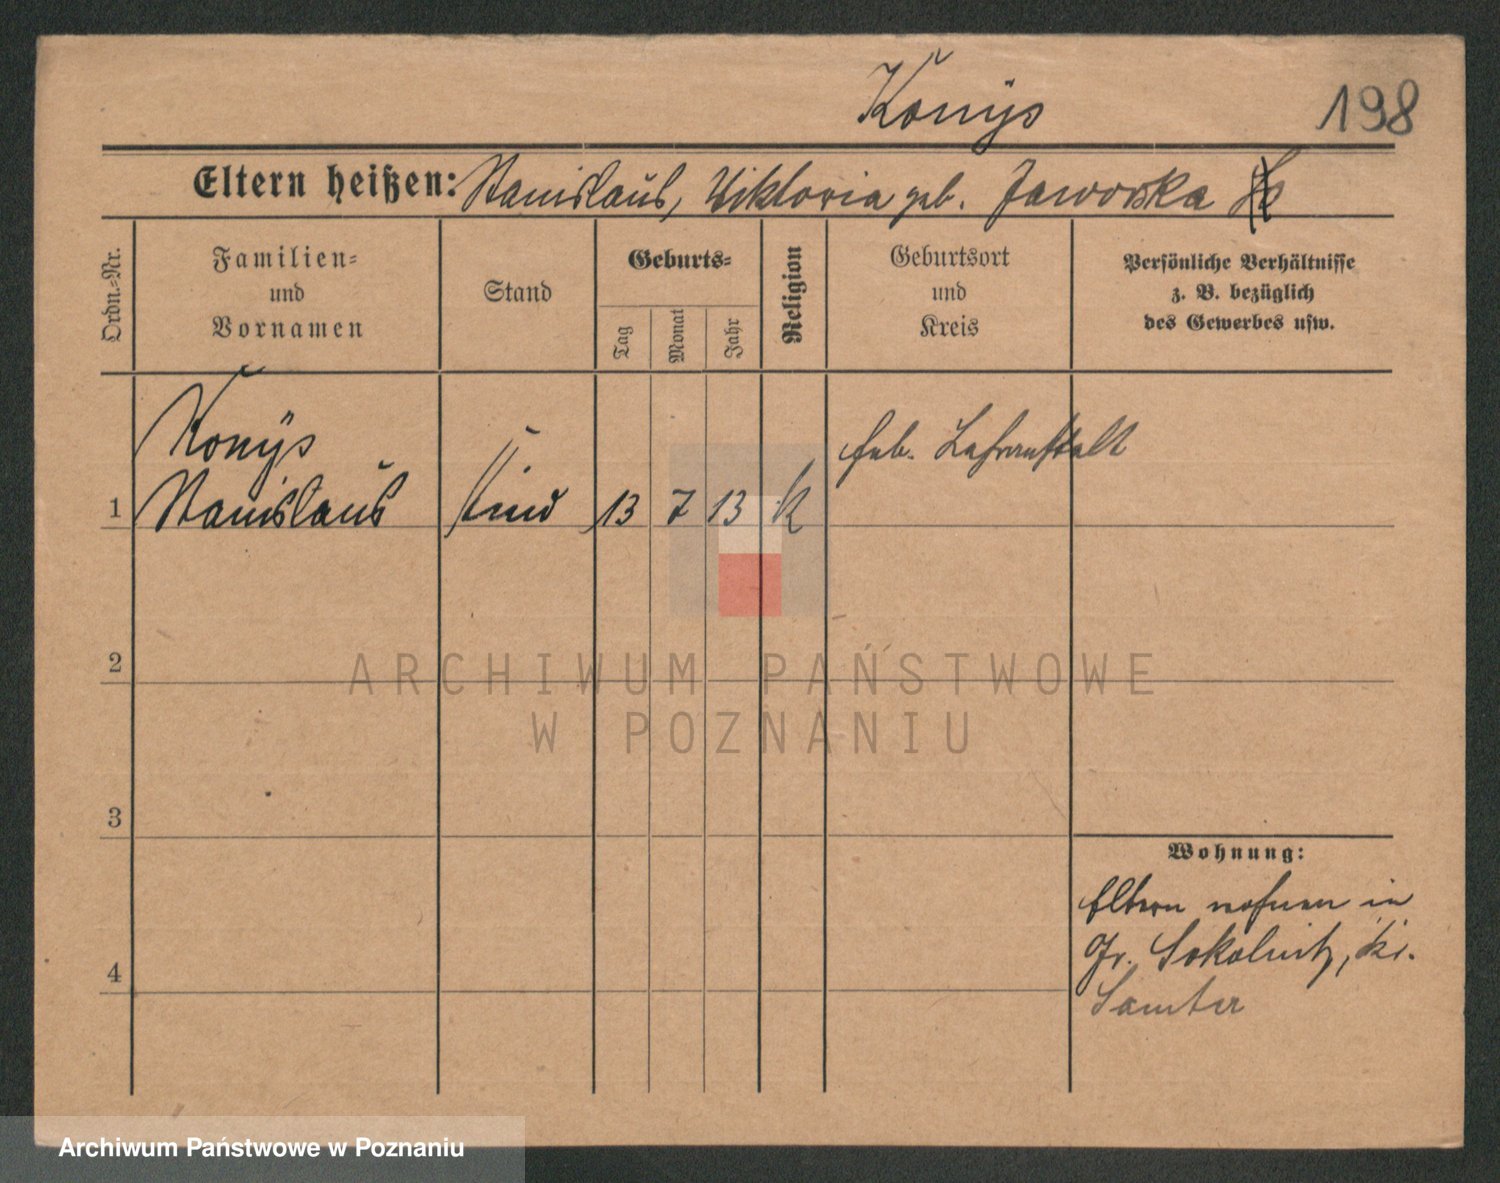 Konÿs
198
Eltern heißen: Stanislaus, Viktoria geb. Jaworska
Ordn.-Nr.
Familien-
und
Vornamen
Stand
Geburts-
Tag
Monat
Jahr
Religion
Geburtsort
und
Kreis
Persönliche Verhältnisse
z. B. bezüglich
des Gewerbes usw.
Konÿs
Heb. Lehranstalt
1 Stanislaus Kind 13 7 13 K
2
ARCHIWUM PAŃSTWOWE
W POZNANIU
3
Wohnung:
Eltern wohnen in
Gr. Sokolnik, Kr.
4
Samter
Archiwum Państwowe w Poznaniu